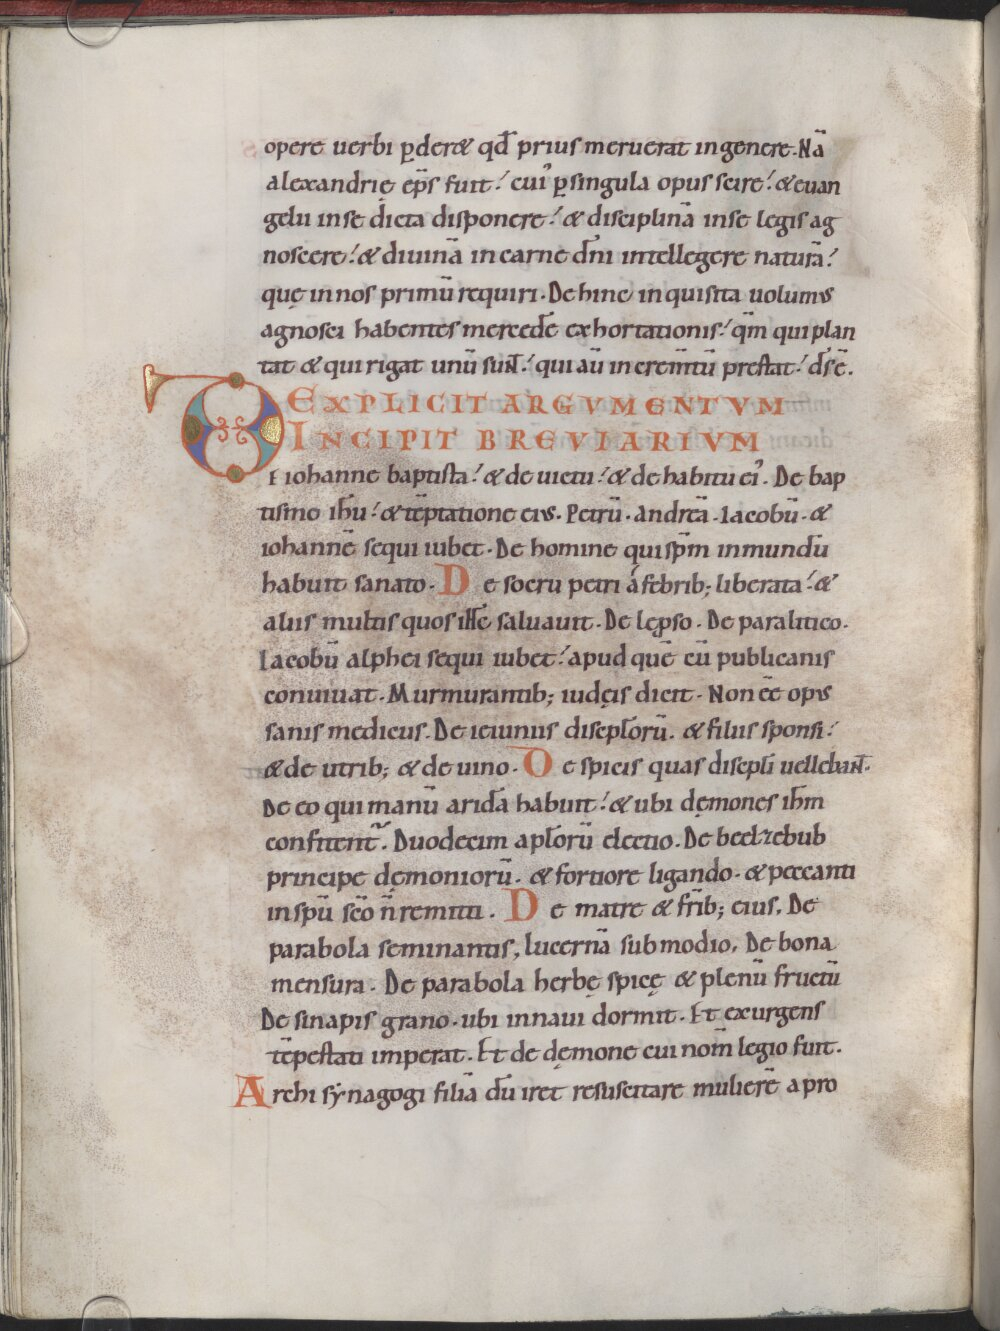 opere uerbi ꝑderet qd̄ prius meruerat in genere. Nā
alexandrię ep̄s fuit. cuiꝰ ꝑ singula opus scire. & euan
gelii in se dicta disponere. & disciplinā in se legis ag
noscere. & diuinā in carne dn̄i intellegere naturā.
quę in nos primū requiri. Dehinc inquisita uolumus
agnosci habentes mercedē exhortationis. qm̄ qui plan
tat & qui rigat unū sunt. qui aū increm̄tū prestat. ds̄ ē.
EXPLICIT ARGVMENTVM
INCIPIT BREVIARIVM
DE iohanne baptista. & de uictu. & de habitu eiꝰ. De bap
tismo ih̄u. & tēptatione eius. Petrū. andreā. Iacobū. &
iohannē sequi iubet. De homine qui sp̄m inmundū
habuit sanato. De socru petri a febrib; liberata. &
aliis multis quos ille saluauit. De leproso. De paralitico.
Iacobū alphei sequi iubet. apud quē cū publicanis
conuiuat. Murmurantib; iudęis dicit. Non ēe opus
sanis medicus. De ieiuniis discipl̄orū. & filiis sponsi.
& de utrib; & de uino. De spicis quas discipl̄i uellebant.
De eo qui manū aridā habuit. & ubi dęmones ih̄m
confitent̄. Duodecim apl̄orū electio. De beelzebub
principe dęmoniorū. & fortiore ligando. & peccanti
in sp̄u sc̄o n̄ remitti. De matre & fr̄ib; eius. De
parabola seminantis, lucernā sub modio. De bona
mensura. De parabola herbę spicę & plenū fructū
De sinapis grano. ubi in naui dormit. Et exurgens
tēpestati imperat. Et de dęmone cui nom̄ legio fuit.
Archisynagogi filiā dū iret resuscitare mulierē a pro